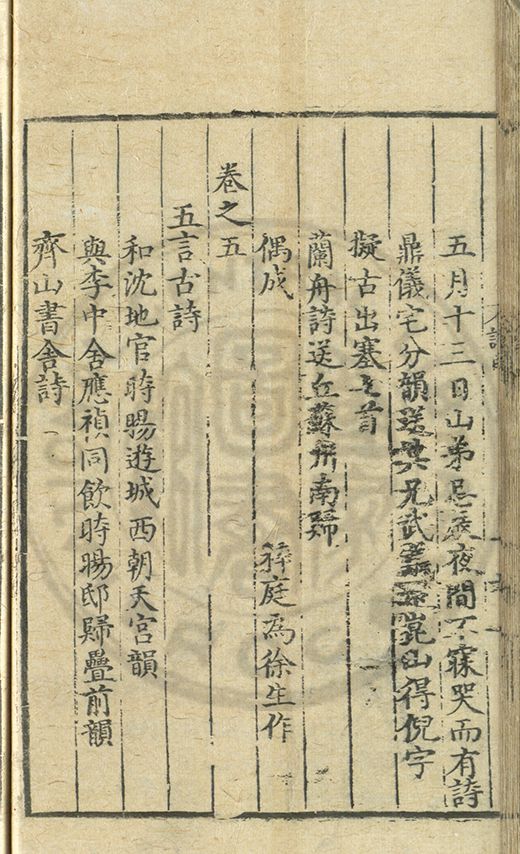 五月十三日山弟忌辰夜間不寐哭而有詩
鼎儀宅分韻送其兄武 崑山得倪字
擬古出塞七首
蘭舟詩送丘蘇州南歸
偶成 梓庭為徐生作
卷之五
五言古詩
和沈地官時暘遊城西朝天宮韻
與李中舍應禎同飲時暘邸歸疊前韻
齊山書舍詩